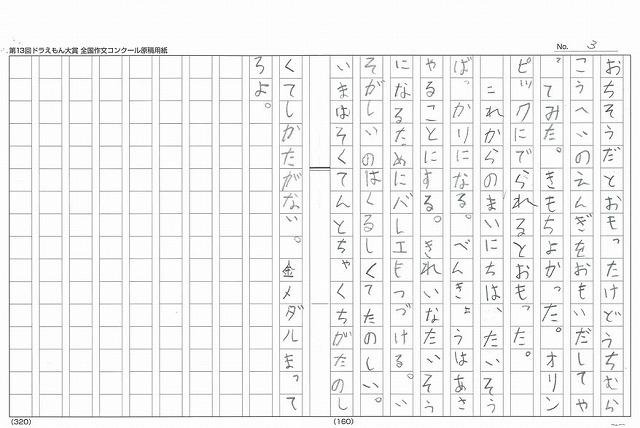 第13回ドラえもん大賞 全国作文コンクール原稿用紙
No. 3
おちそうだとおもったけどうちむら
こうへいのえんぎをおもいだしてや
ってみた。きもちよかった。オリン
ピックにでられるとおもった。
これからのまいにちは、たいそう
ばっかりになる。べんきょうはあさ
やることにする。きれいなたいそう
になるためにバレエもつづける。い
そがしいのはくるしくてたのしい。
いまはそくてんとちゃくちがたのし
くてしかたがない。金メダルまって
ろよ。
(160)
(320)